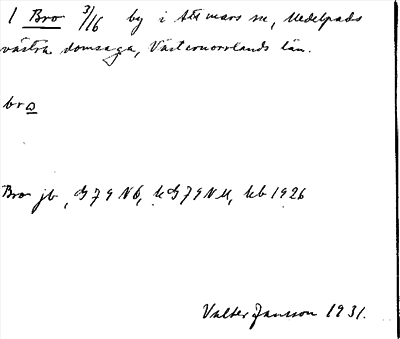 1 Bro 3/16 by i Attmars sn, Medelpads
västra domsaga, Västernorrlands län.
bro
Bro jb, G 79 NÖ, kG 79 NU, kb 1926
Valter Jansson 1931.